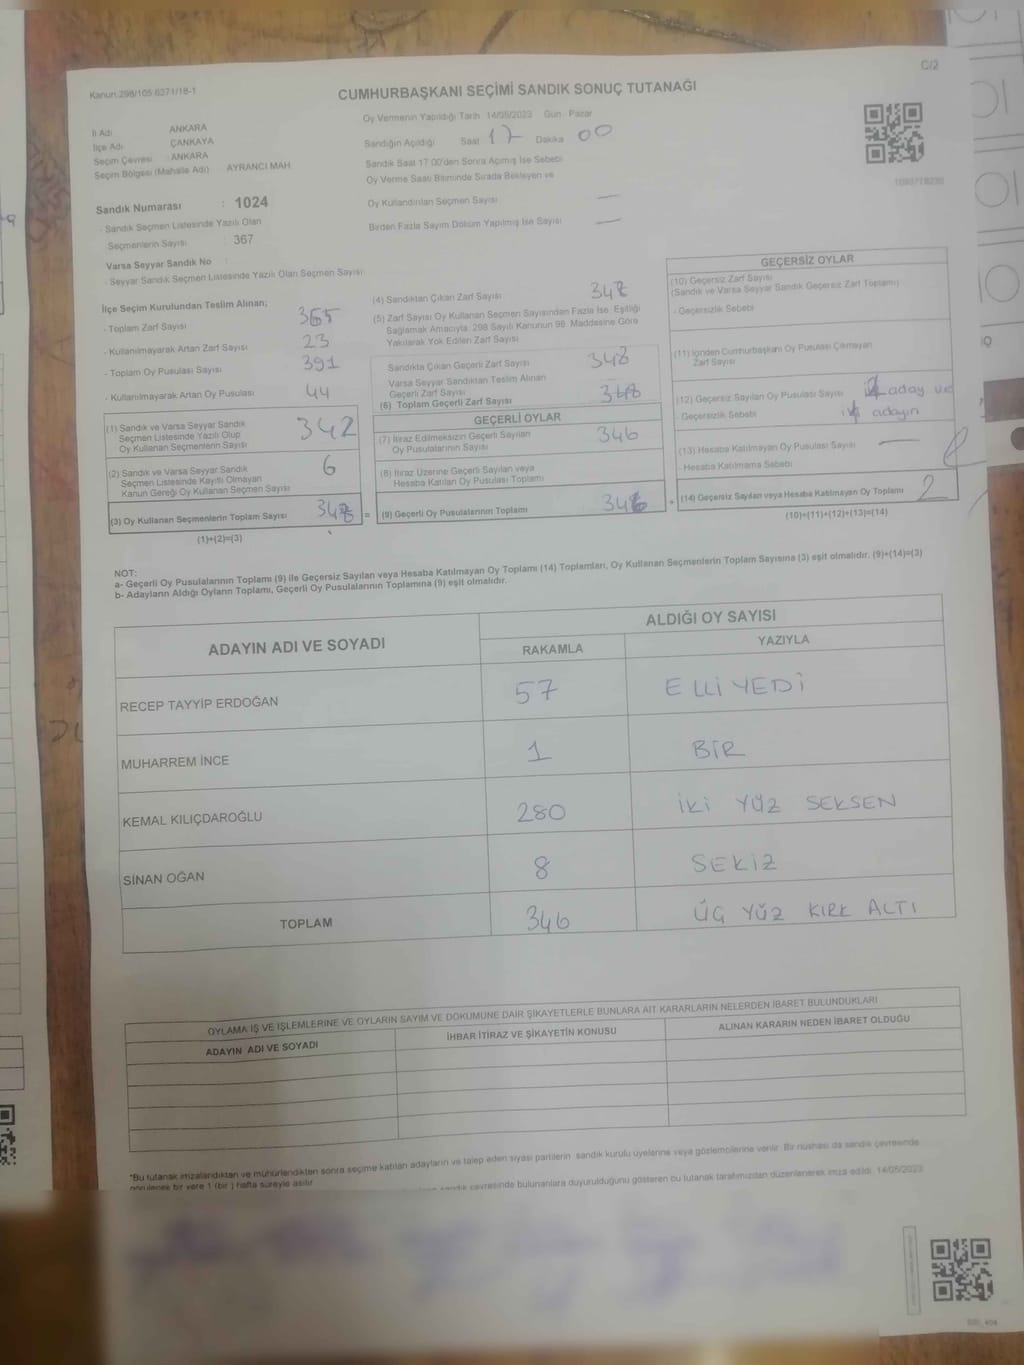 C/2
Kanun 298/105 6271/18-1
CUMHURBAŞKANI SEÇİMİ SANDIK SONUÇ TUTANAĞI
Oy Vermenin Yapıldığı Tarih 14/05/2023 Gün Pazar
İl Adı ANKARA
İlçe Adı ÇANKAYA
Seçim Çevresi : ANKARA
Seçim Bölgesi (Mahalle Adı) AYRANCI MAH.
Sandığın Açıldığı Saat 17 Dakika 00
Sandık Saat 17:00'den Sonra Açılmış İse Sebebi
Oy Verme Saati Bitiminde Sırada Bekleyen ve
Oy Kullandırılan Seçmen Sayısı —
Birden Fazla Sayım Döküm Yapılmış İse Sayısı —
Sandık Numarası : 1024
- Sandık Seçmen Listesinde Yazılı Olan
Seçmenlerin Sayısı : 367
Varsa Seyyar Sandık No :
- Seyyar Sandık Seçmen Listesinde Yazılı Olan Seçmen Sayısı
İlçe Seçim Kurulundan Teslim Alınan;
- Toplam Zarf Sayısı
- Kullanılmayarak Artan Zarf Sayısı 23
- Toplam Oy Pusulası Sayısı 391
- Kullanılmayarak Artan Oy Pusulası 44
(1) Sandık ve Varsa Seyyar Sandık
Seçmen Listesinde Yazılı Olup
Oy Kullanan Seçmenlerin Sayısı 342
(2) Sandık ve Varsa Seyyar Sandık
Seçmen Listesinde Kayıtlı Olmayan
Kanun Gereği Oy Kullanan Seçmen Sayısı 6
(3) Oy Kullanan Seçmenlerin Toplam Sayısı 348 =
(1)+(2)=(3)
(4) Sandıktan Çıkan Zarf Sayısı
(5) Zarf Sayısı Oy Kullanan Seçmen Sayısından Fazla İse; Eşitliği
Sağlamak Amacıyla; 298 Sayılı Kanunun 98. Maddesine Göre
Yakılarak Yok Edilen Zarf Sayısı
Sandıkta Çıkan Geçerli Zarf Sayısı 348
Varsa Seyyar Sandıktan Teslim Alınan
Geçerli Zarf Sayısı
(6) Toplam Geçerli Zarf Sayısı 348
GEÇERLİ OYLAR
(7) İtiraz Edilmeksizin Geçerli Sayılan
Oy Pusulalarının Sayısı 346
(8) İtiraz Üzerine Geçerli Sayılan veya
Hesaba Katılan Oy Pusulası Toplamı
(9) Geçerli Oy Pusulalarının Toplamı 346 +
GEÇERSİZ OYLAR
(10) Geçersiz Zarf Sayısı
(Sandık ve Varsa Seyyar Sandık Geçersiz Zarf Toplamı)
- Geçersizlik Sebebi
(11) İçinden Cumhurbaşkanı Oy Pusulası Çıkmayan
Zarf Sayısı
(12) Geçersiz Sayılan Oy Pusulası Sayısı aday ve
Geçersizlik Sebebi adayın
(13) Hesaba Katılmayan Oy Pusulası Sayısı —
- Hesaba Katılmama Sebebi
(14) Geçersiz Sayılan veya Hesaba Katılmayan Oy Toplamı 2
(10)+(11)+(12)+(13)=(14)
NOT:
a- Geçerli Oy Pusulalarının Toplamı (9) ile Geçersiz Sayılan veya Hesaba Katılmayan Oy Toplamı (14) Toplamları, Oy Kullanan Seçmenlerin Toplam Sayısına (3) eşit olmalıdır. (9)+(14)=(3)
b- Adayların Aldığı Oyların Toplamı, Geçerli Oy Pusulalarının Toplamına (9) eşit olmalıdır.
ADAYIN ADI VE SOYADI ALDIĞI OY SAYISI
RAKAMLA YAZIYLA
RECEP TAYYİP ERDOĞAN 57 ELLİ YEDİ
MUHARREM İNCE 1 BİR
KEMAL KILIÇDAROĞLU 280 İKİ YÜZ SEKSEN
SİNAN OĞAN 8 SEKİZ
TOPLAM 346 ÜÇ YÜZ KIRK ALTI
OYLAMA İŞ VE İŞLEMLERİNE VE OYLARIN SAYIM VE DÖKÜMÜNE DAİR ŞİKAYETLERLE BUNLARA AİT KARARLARIN NELERDEN İBARET BULUNDUKLARI
ADAYIN ADI VE SOYADI İHBAR İTİRAZ VE ŞİKAYETİN KONUSU ALINAN KARARIN NEDEN İBARET OLDUĞU
*Bu tutanak imzalandıktan ve mühürlendikten sonra seçime katılan adayların ve talep eden siyasi partilerin sandık kurulu üyelerine veya gözlemcilerine verilir. Bir nüshası da sandık çevresinde
görülecek bir yere 1 (bir) hafta süreyle asılır.
sandık çevresinde bulunanlara duyurulduğunu gösteren bu tutanak tarafımızdan düzenlenerek imza edildi. 14/05/2023